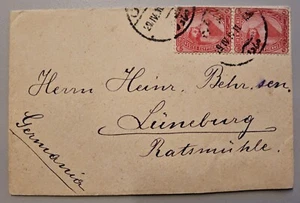 Herrn Heinr. Behr sen.
Lüneburg
Ratsmühle.
Germania